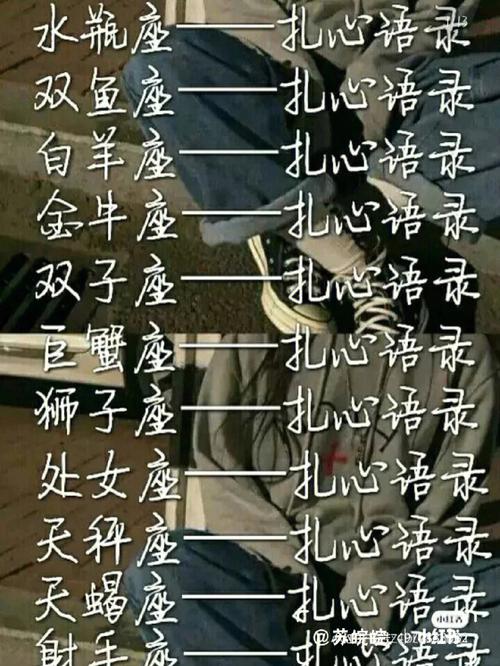 水瓶座——扎心语录
双鱼座——扎心语录
白羊座——扎心语录
金牛座——扎心语录
双子座——扎心语录
巨蟹座——扎心语录
狮子座——扎心语录
处女座——扎心语录
天秤座——扎心语录
天蝎座——扎心语录
小红书
射手座——扎心语录
@苏皖皖
小红书